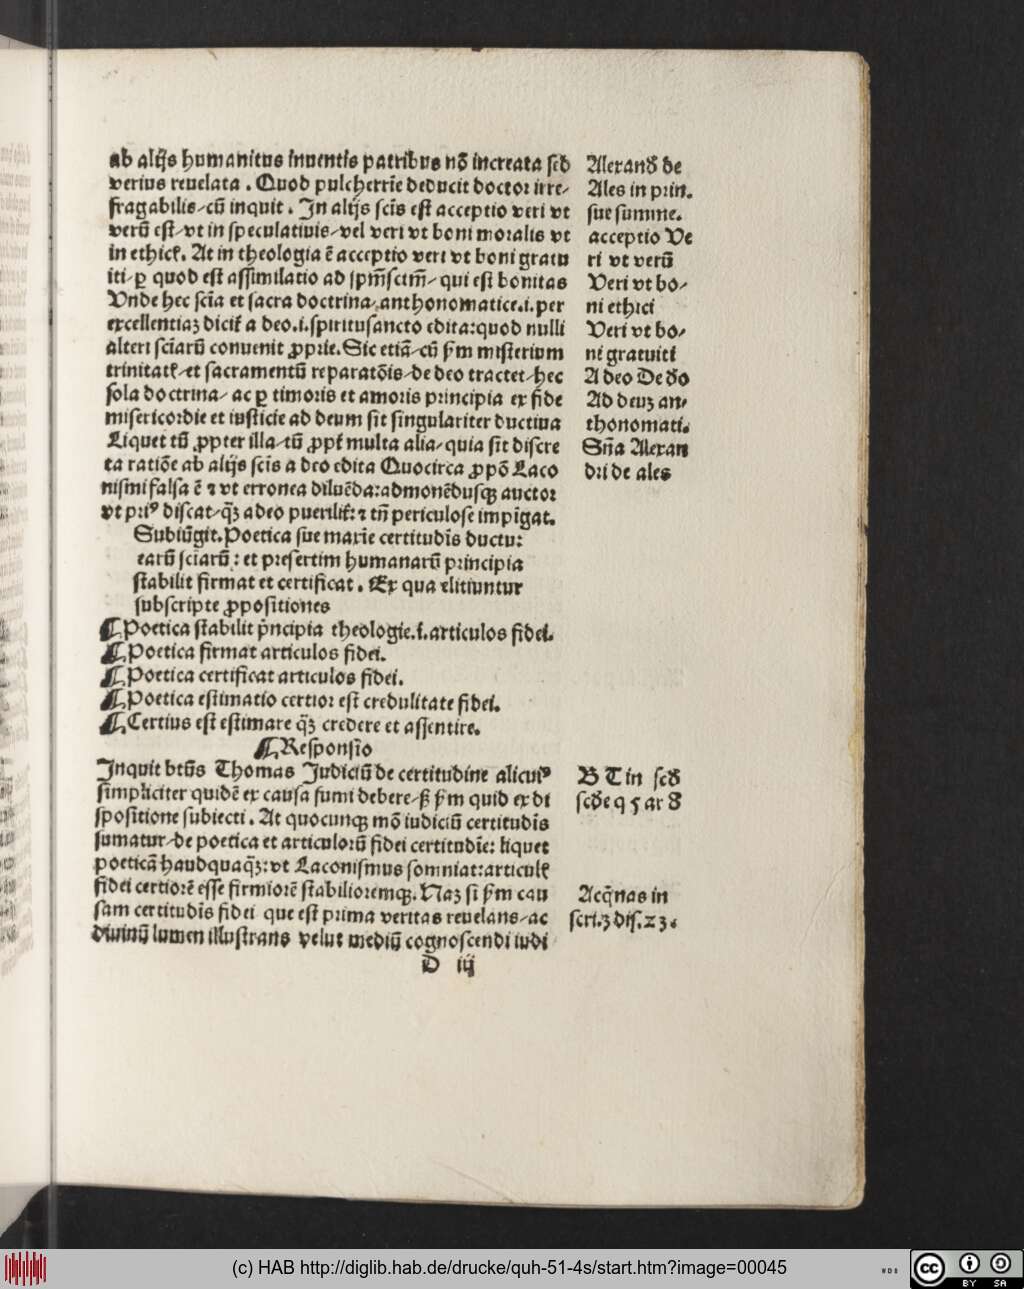 ab alijs humanitus inuentis patribus nō increata sed
verius reuelata . Quod pulcherrīe deducit doctor irre/
fragabilis/cū inquit . In alijs sciīs est acceptio veri vt
verū est/vt in speculatiuis/vel veri vt boni moralis vt
in ethicł. At in theologia ē acceptio veri vt boni gratu
iti/ꝑ quod est assimilatio ad ipm̄sctm̄/qui est bonitas
Vnde hec scīa et sacra doctrina/anthonomatice.i.per
excellentiaz dicił a deo.i.spiritusancto edita:quod nulli
alteri sciarū conuenit ꝓprie.Sic etiā/cū ẜm misterium
trinitatł/et sacramentū reparatōis/de deo tractet/hec
sola doctrina/ ac ꝑ timoris et amoris principia ex fide
misericordie et iusticie ad deum sit singulariter ductiua
Liquet tū ꝓpter illa/tū ꝓpł multa alia/quia sit discre
ta ratiōe ab alijs sciīs a deo edita Quocirca ꝓpō Laco
nismi falsa ē ⁊ vt erronea diluēda:admonēdusqꝫ auctor
vt priꝰ discat/q̄ꝫ adeo puerilił:⁊ tn̄ periculose impīgat.
Subiūgit.Poetica sue maxīe certitudīs ductu:
earū sciarū : et presertim humanarū principia
stabilit firmat et certificat . Ex qua elitiuntur
subscripte ꝓpositiones
¶Poetica stabilit p̄ncipia theologie.i.articulos fidei.
¶Poetica firmat articulos fidei.
¶Poetica certificat articulos fidei.
¶Poetica estimatio certior est credulitate fidei.
¶Certius est estimare q̄ꝫ credere et assentire.
¶Responsio
Inquit btūs Thomas Iudiciū de certitudine alicuiꝰ
simpliciter quidē ex causa sumi debere/sꝫ ẜm quid ex di
spositione subiecti . At quocunqꝫ mō iudiciū certitudīs
sumatur/de poetica et articulorū fidei certitudīe: liquet
poeticā haudquaq̄ꝫ:vt Laconismus somniat:articulł
fidei certiorē esse firmiorē stabilioremqꝫ. Naꝫ si ẜm cau
sam certitudīs fidei que est prima veritas reuelans/ac
diuinū lumen illustrans velut mediū cognoscendi iudi
D iij
Alexand̄ de
Ales in prin.
sue summe.
acceptio Ve
ri vt verū
Veri vt bo/
ni ethici
Veri vt bo/
ni gratuiti
A deo De d̄o
Ad deuꝫ an/
thonomati.
Sn̄a Alexan
dri de ales
B T in scd̄
scd̄e q 5 ar 8
Acq̄nas in
scri.3 dis.23.
(c) HAB http://diglib.hab.de/drucke/quh-51-4s/start.htm?image=00045
cc BY SA